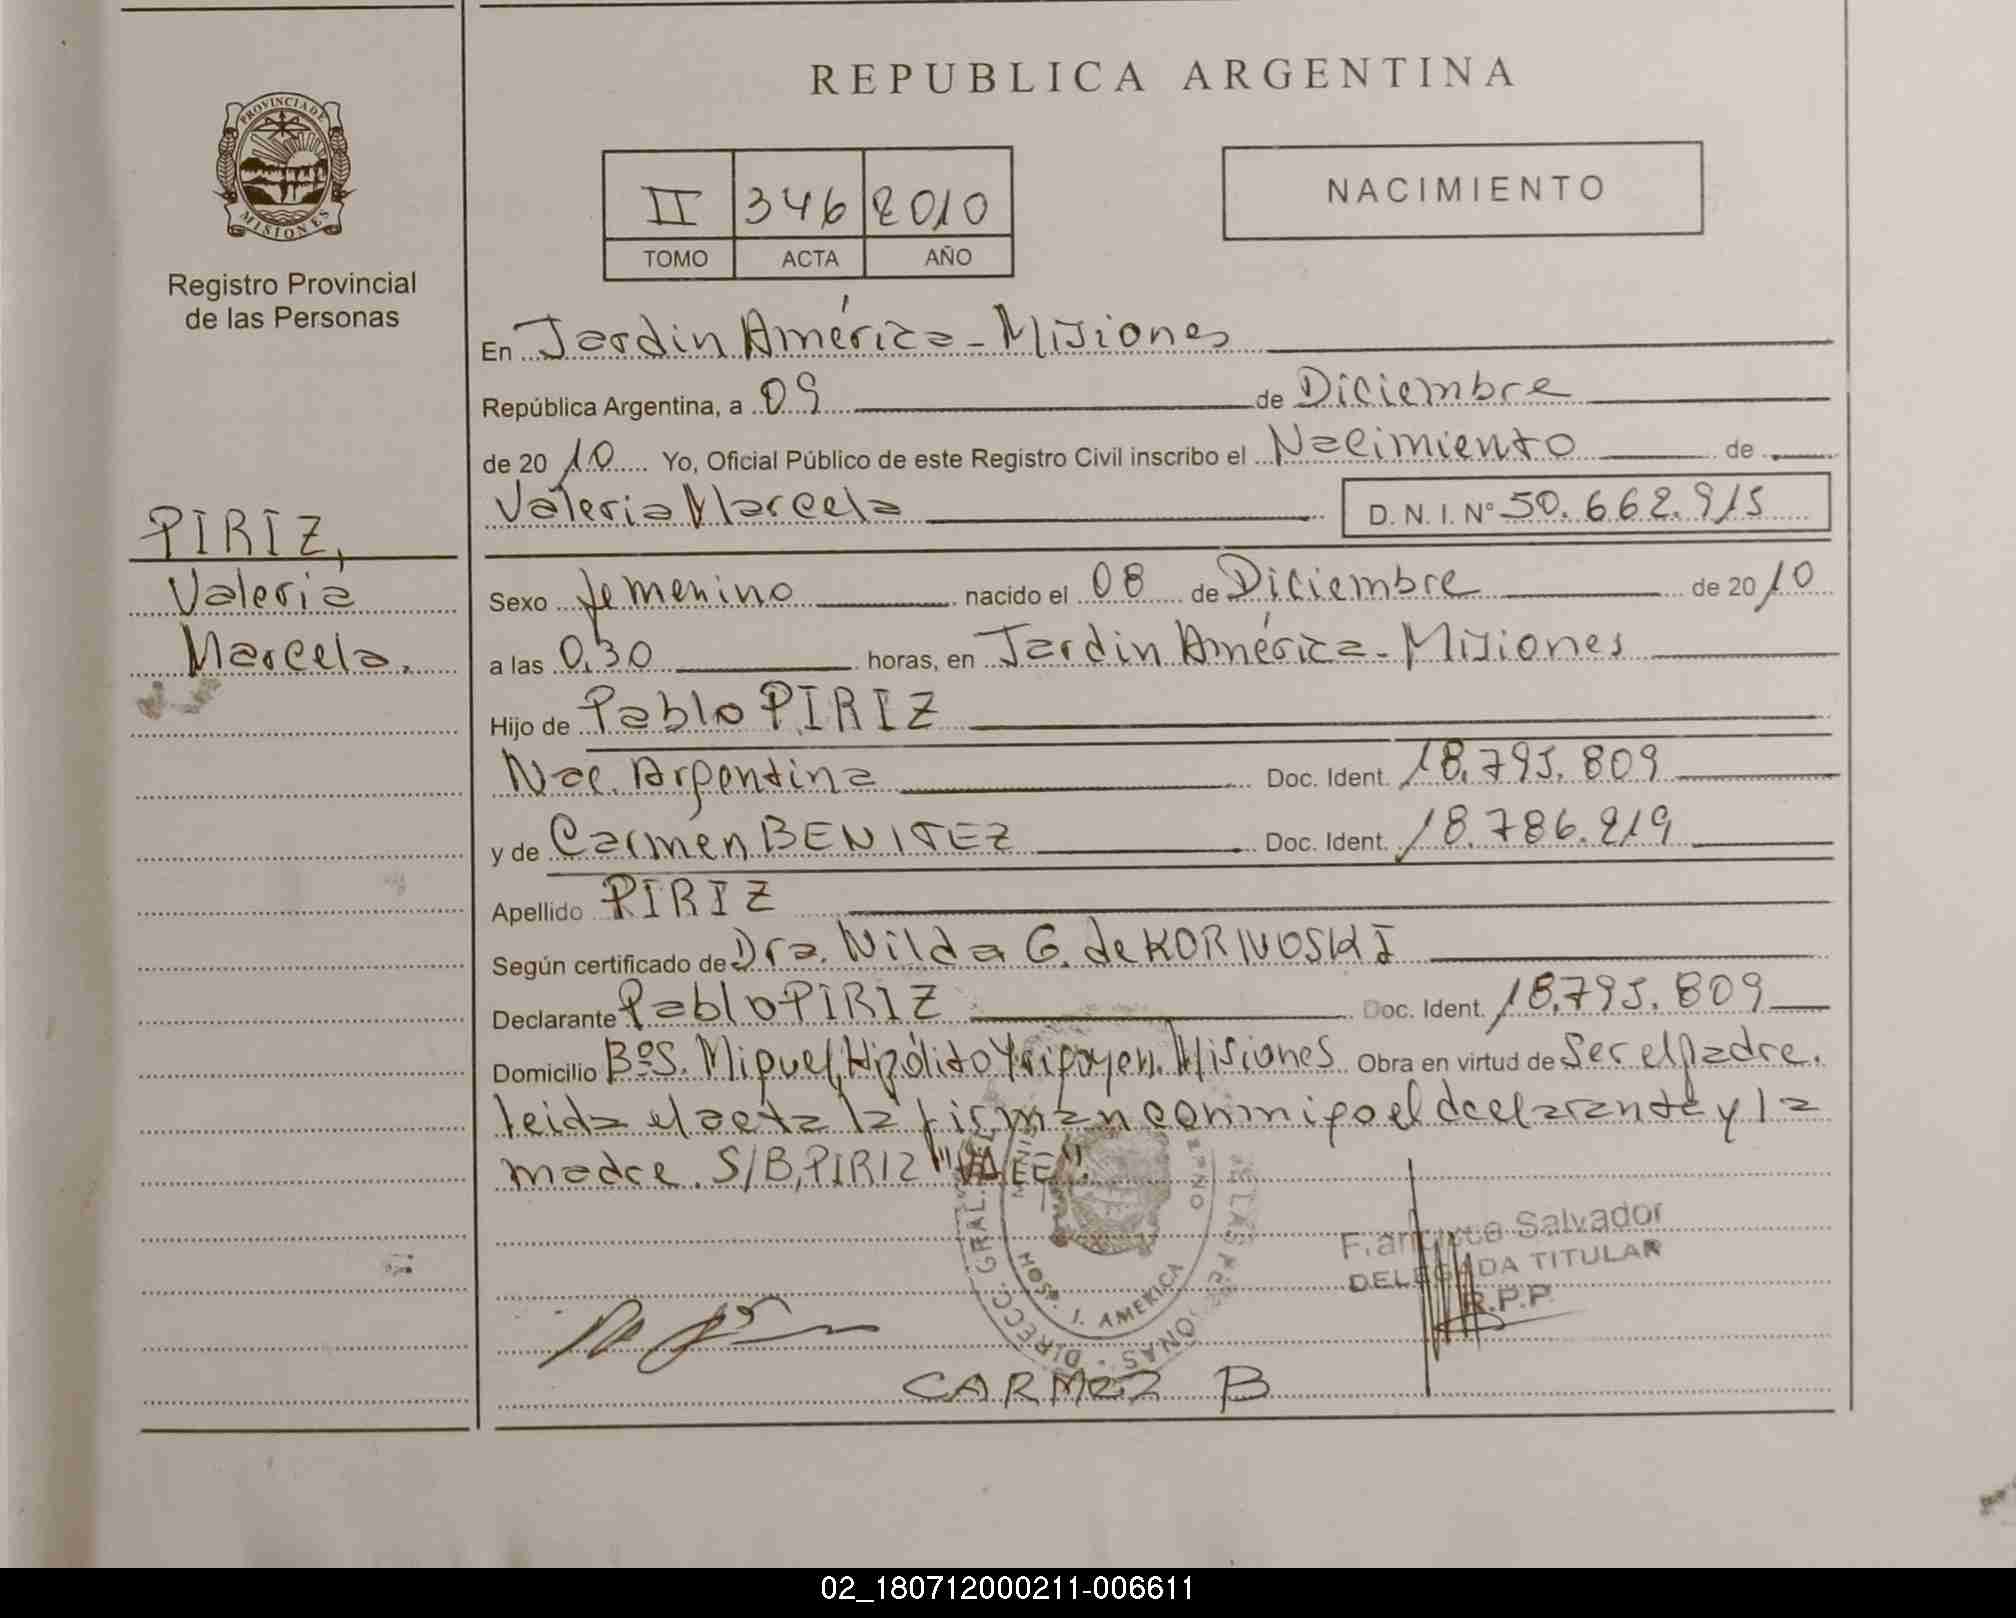 REPUBLICA ARGENTINA
PROVINCIA DE
MISIONES
Registro Provincial
de las Personas
II 346 2010
TOMO ACTA AÑO
NACIMIENTO
En Jardin América - Misiones
República Argentina, a 09 de Diciembre
de 2010 Yo, Oficial Público de este Registro Civil inscribo el Nacimiento de
Valeria Marcela D.N.I. Nº 50.662.915
PIRIZ,
Valeria
Marcela.
Sexo femenino nacido el 08 de Diciembre de 2010
a las 0,30 horas, en Jardin América - Misiones
Hijo de Pablo PIRIZ
Nac. Argentina Doc. Ident. 18.795.809
y de Carmen BENITEZ Doc. Ident. 18.786.219
Apellido PIRIZ
Según certificado de Dra. Nilda G. de KORNOSKI
Declarante Pablo PIRIZ Doc. Ident. 18.795.809
Domicilio BºS. Miguel, Hipólito Yrigoyen. Misiones Obra en virtud de Ser el padre.
leida el acta la firman conmigo el declarante y la
madre. S/B, PIRIZ "VALE".
DIRECC. GRAL.
HOSP. J. AMERICA
Salvador
DELEGADA TITULAR
R.P.P.
CARMEZ B
02_180712000211-006611